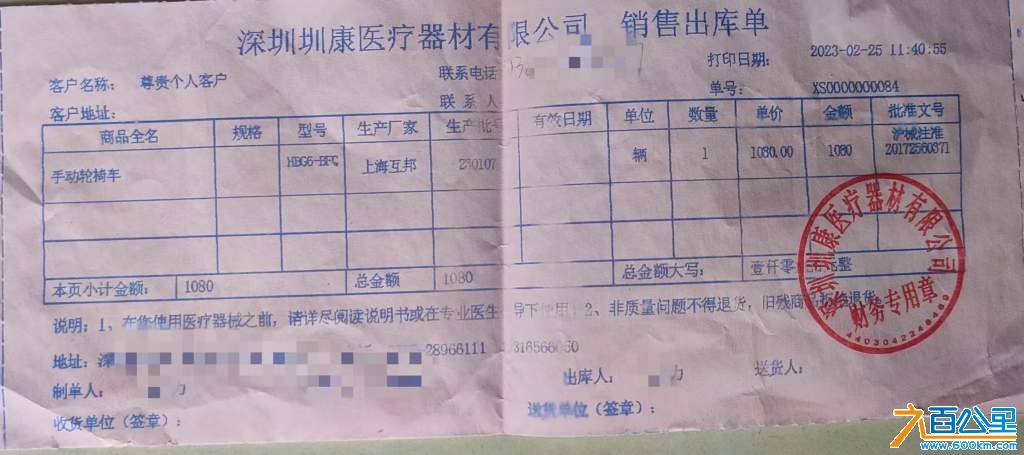 深圳圳康医疗器材有限公司 销售出库单
打印日期: 2023-02-25 11:40:55
客户名称: 尊贵个人客户 联系电话
单号: XS0000000084
客户地址: 联系人
商品全名 规格 型号 生产厂家 生产批号 有效日期 单位 数量 单价 金额 批准文号
手动轮椅车 HBG5-BFQ 上海互邦 230107 辆 1 1080.00 1080 沪械注准
20172560371
本页小计金额: 1080 总金额 1080 总金额大写: 壹仟零 整
说明: 1、在您使用医疗器械之前, 请详尽阅读说明书或在专业医生 导下使用; 2、非质量问题不得退货, 旧残商品 退货
地址: 深 28966111 316566060
制单人: 力 出库人: 力 送货人:
收货单位(签章): 送货单位(签章):
深圳圳康医疗器材有限公司
财务专用章
440304224948
九百公里
www.600km.com